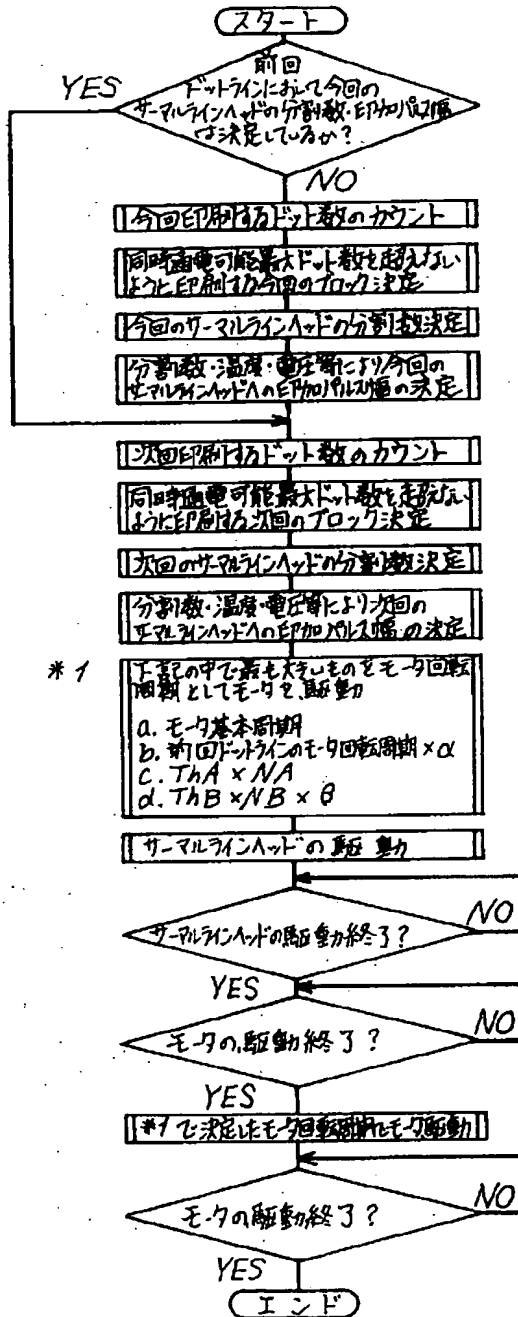 スタート
前回
ドットラインにおいて今回の
サーマルラインヘッドの分割数・印加パルス幅
は決定しているか?
YES
NO
今回印刷するドット数のカウント
同時通電可能最大ドット数を超えない
ように印刷する今回のブロック決定
今回のサーマルラインヘッドの分割数決定
分割数・温度・電圧等により今回の
サーマルラインヘッドへの印加パルス幅の決定
次回印刷するドット数のカウント
同時通電可能最大ドット数を超えない
ように印刷する次回のブロック決定
次回のサーマルラインヘッドの分割数決定
分割数・温度・電圧等により次回の
サーマルラインヘッドへの印加パルス幅の決定
*1
下記の中で最も大きいものをモータ回転
周期としてモータを駆動
a. モータ基本周期
b. 前回ドットラインのモータ回転周期×α
c. ThA × NA
d. ThB × NB × β
サーマルラインヘッドの駆動
サーマルラインヘッドの駆動終了?
NO
YES
モータの駆動終了?
NO
YES
*1で決定したモータ回転周期にモータ駆動
モータの駆動終了?
NO
YES
エンド